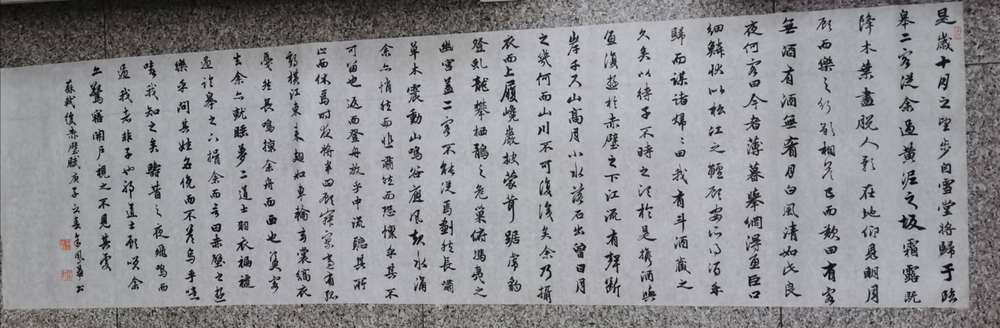 是歲十月之望步自雪堂將歸于臨
皋二客從余過黃泥之坂霜露既
降木葉盡脫人影在地仰見明月
顧而樂之行歌相答已而歎曰有客
無酒有酒無肴月白風清如此良
夜何客曰今者薄暮舉網得魚巨口
細鱗狀似松江之鱸顧安所得酒乎
歸而謀諸婦婦曰我有斗酒藏之
久矣以待子不時之須於是攜酒與
魚復遊於赤壁之下江流有聲斷
岸千尺山高月小水落石出曾日月
之幾何而山川不可復矣余乃攝
衣而上履巉巖披蒙茸踞虎豹
登虬龍攀栖鶻之危巢俯馮夷之
幽宮蓋二客不能從焉劃然長嘯
草木震動山鳴谷應風起水涌
余亦悄然而悲肅然而恐懍乎其不
可留也返而登舟放乎中流聽其所
止而休焉時夜將半四顧寂寥適有孤
鶴橫江東來翅如車輪玄裳縞衣
戛然長鳴掠余舟而西也須臾客
去余亦就睡夢二道士羽衣蹁躚
過臨皋之下揖余而言曰赤壁之遊
樂乎問其姓名俛而不答嗚呼噫
嘻我知之矣疇昔之夜飛鳴而
過我者非子也邪道士顧笑余
亦驚寤開戶視之不見其處
蘇軾後赤壁賦庚子